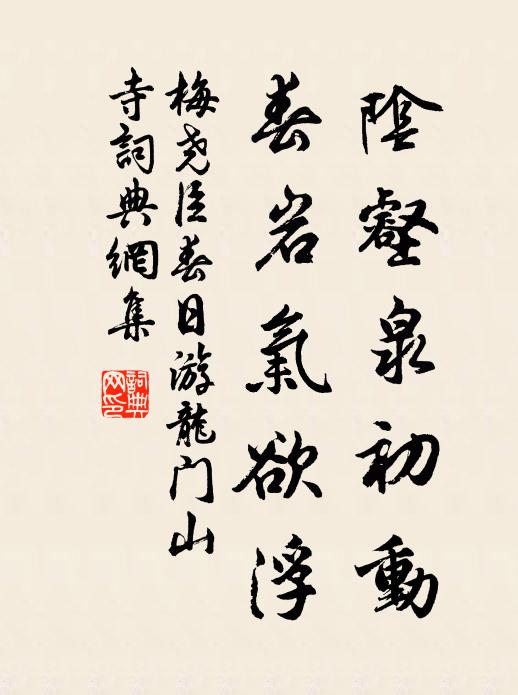 陰壑泉初動
春岩氣欲浮
梅堯臣春日游龍门山
寺詞典網集
詞典
网印